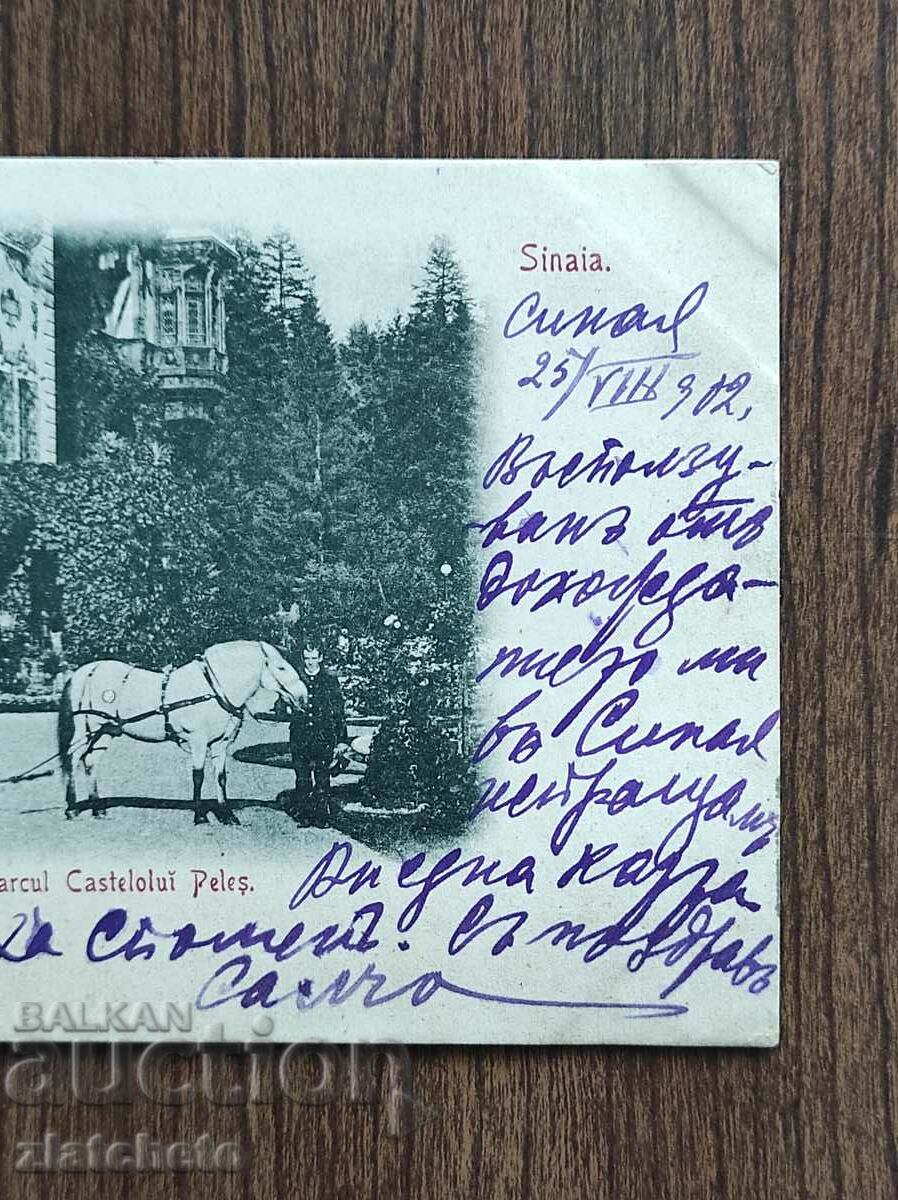 Sinaia.
Синая
25/VIII 902.
Въсползу-
ванъ отъ
дохожда-
нието ми
въ Синая
испращамъ
Ви една кар
за споменъ. Съ поздравъ
Самчо
arcul Casteloluĭ Peleş.
BALKAN
auction
zlatcheto